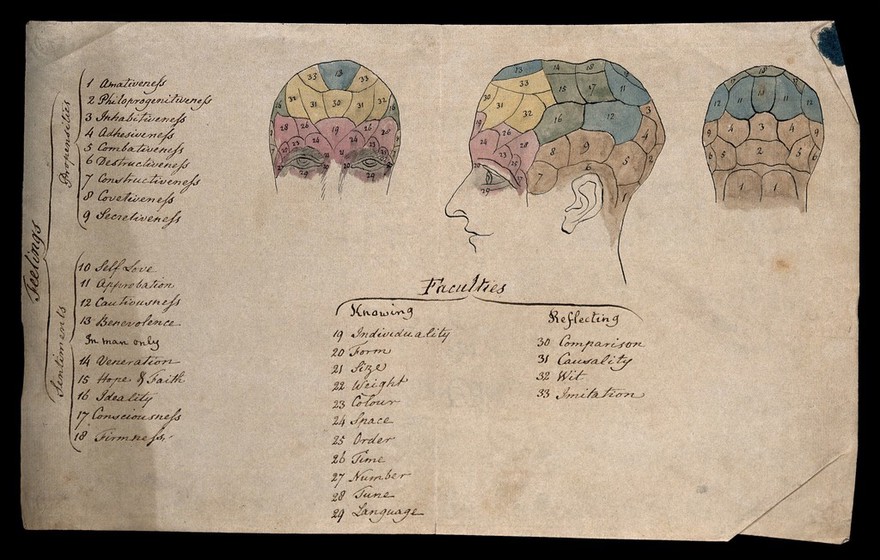 Feelings
Propensities
1 Amativeneſs
2 Philoprogenitiveneſs
3 Inhabitiveneſs
4 Adhesiveneſs
5 Combativeneſs
6 Destructiveneſs
7 Constructiveneſs
8 Covetiveneſs
9 Secretiveneſs
Sentiments
10 Self Love
11 Approbation
12 Cautiousneſs
13 Benevolence
In man only
14 Veneration
15 Hope & Faith
16 Ideality
17 Consciousneſs
18 Firmneſs
Faculties
Knowing
19 Individuality
20 Form
21 Size
22 Weight
23 Colour
24 Space
25 Order
26 Time
27 Number
28 Tune
29 Language
Reflecting
30 Comparison
31 Causality
32 Wit
33 Imitation